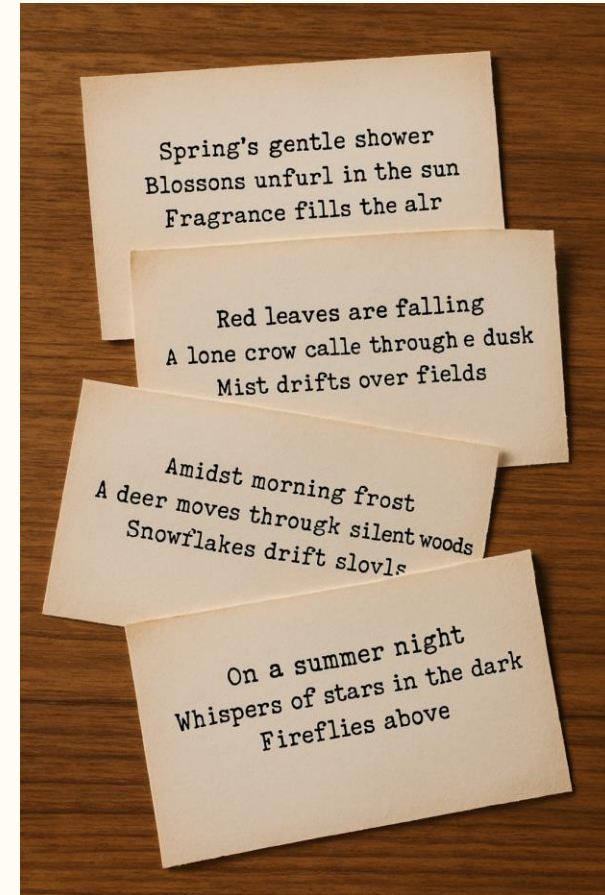 Spring’s gentle shower
Blossons unfurl in the sun
Fragrance fills the alr
Red leaves are falling
A lone crow calle through e dusk
Mist drifts over fields
Amidst morning frost
A deer moves througk silent woods
Snowflakes drift slovls
On a summer night
Whispers of stars in the dark
Fireflies above